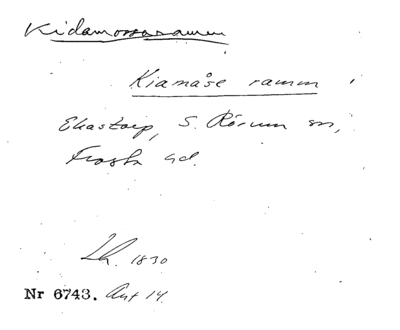 Kidamossaramm
Kiamåse ramm
Ekastorp, S. Rörum sn,
Frosta hd.
Lh. 1830
Nr 6743. Ant 14.